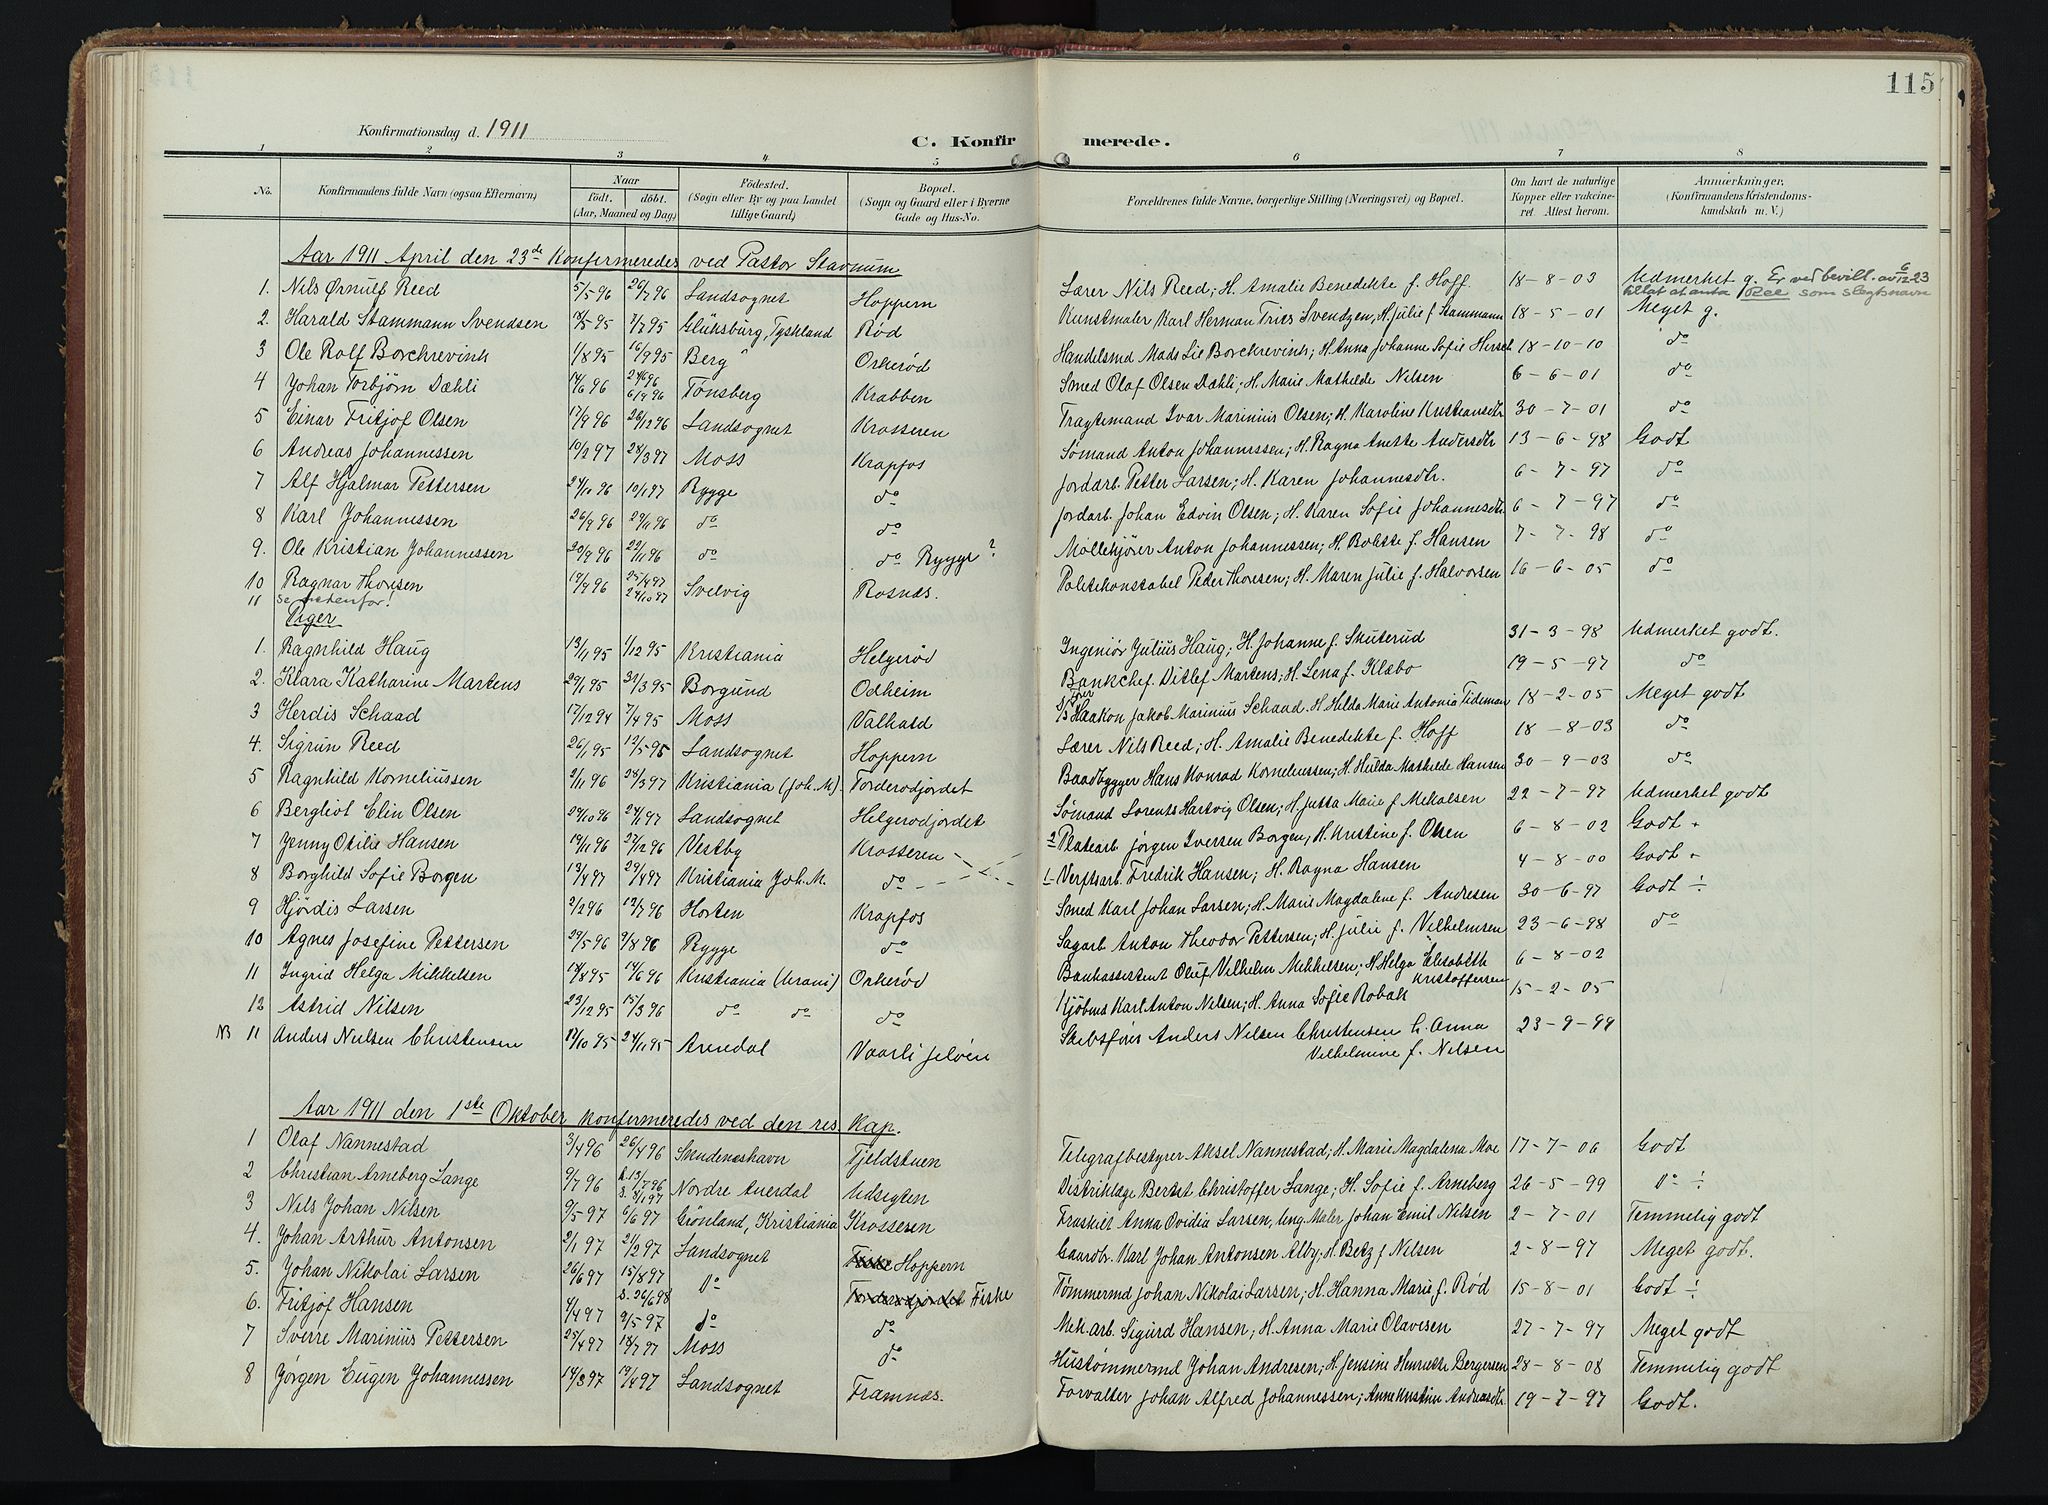 115
Konfirmationsdag d. 1911
C. Konfirmerede.
1 2 3 4 5 6 7 8
No. Konfirmandens fulde Navn (ogsaa Efternavn) Naar født. døbt. (Aar, Maaned og Dag) Fødested. (Sogn eller By og paa Landet tillige Gaard) Bopæl. (Sogn og Gaard eller i Byerne Gade og Hus-No. Forældrenes fulde Navne, borgerlige Stilling (Næringsvei) og Bopæl. Om havt de naturlige Kopper eller vakcineret. Attest herom. Anmærkninger. (Konfirmandens Kristendomskundskab m. V.)
Aar 1911 April den 23de Konfirmeredes ved Pastor Stavnum
1. Nils Ørnulf Reed 5/5 96 26/7 96 Landsognet Hoppern Lærer Nils Reed; H. Amalie Benedikte f. Hoff 18-8-03 Udmerket g. Er ved bevill. av 6/12 23 tillat at anta Ree som slegtsnavn
2. Harald Stammann Svendsen 18/5 95 7/7 95 Glüksburg, Tyskland Rød Kunstmaler Karl Herman Fries Svendsen; H. Julie f. Stammann 18-5-01 Meget g.
3 Ole Rolf Borchrevink 1/8 95 16/9 95 Berg Orkerød Handelsmd Mads Lie Borchrevink; H. Anna Johanne Sofie Hersch 18-10-10 do
4 Johan Torbjørn Dæhli 14/6 96 24/6 96 6/9 96 Tønsberg Krabben Smed Olaf Olsen Dæhli; H. Marie Mathilde Nilsen 6-6-01 do
5 Einar Fritjof Olsen 17/9 96 26/12 96 Landsognet Krosseren Fragtemand Ivar Marinius Olsen; H. Karoline Kristiansdtr 30-7-01 do
6 Andreas Johannessen 10/2 97 28/3 97 Moss Krapfos Sømand Anton Johannessen; H. Ragna Anette Andersdtr 13-6-98 Godt
7 Alf Hjalmar Pettersen 24/10 96 10/1 97 Rygge do Jordarb. Petter Larsen; H. Karen Johannesdtr. 6-7-97 do
8 Karl Johannessen 26/9 96 29/11 96 do do Jordarb. Johan Edvin Olsen; H. Karen Sofie Johannesdtr 6-7-97 do
9. Ole Kristian Johannessen 20/9 96 22/11 96 do do Rygge? Møllekjører Anton Johannessen; H. Bolette f. Hansen 7-7-98 do
10 Ragnar Thoresen 19/9 96 25/4 97 24/10 97 Svelvig Rosnæs. Politikonstabel Peder Thoresen; H. Maren Julie f. Halvorsen 16-6-05 do
11 se nedenfor!
Piger
1. Ragnhild Haug 13/11 95 1/12 95 Kristiania Helgerød Ingeniør Julius Haug; H. Johanne f. Skuterud 31-3-98 Udmerket godt.
2. Klara Katharine Martens 29/1 95 31/3 95 Borgund Odheim Bankchef Ditlef Martens; H. Lena f. Klæbo 19-5-97 do
3 Herdis Schaad 17/12 94 7/4 95 Moss Valhald Haakon Jakob Marinius Schaad H. Hilda Marie Antonia Tideman 18-2-05 Meget godt
4. Sigrun Reed 26/1 95 12/5 95 Landsognet Hoppern Lærer Nils Reed; H. Amalie Benedikte f. Hoff 18-8-03 do
5 Ragnhild Korneliussen 2/11 96 28/3 97 Kristiania (Joh. M). Torderødjordet Baadbygger Hans Konrad Korneliussen; H. Hulda Mathilde Hansen 30-9-03 do
6 Bergliot Elin Olsen 29/10 96 24/1 97 Landsognet Helgerødjordet Sømand Lorents Hartvig Olsen; H. Jutta Marie f. Mikalsen 22-7-97 Udmerket godt
7 Jenny Otilie Hansen 19/11 96 27/12 96 Vestby Krosseren 2 Platearb. Jørgen Iversen Borgen; H. Kristine f. Olsen 6-8-02 Godt +
8 Borghild Sofie Borgen 13/1 97 29/4 97 Kristiania Joh. M. do 1 Verftsarb. Fredrik Hansen; H. Ragna Hansen 4-8-00 Godt -
9 Hjørdis Larsen 2/2 96 12/7 96 Horten Krapfos Smed Karl Johan Larsen; H. Marie Magdalene f. Andresen 30-6-97 Godt ÷
10 Agnes Josefine Pettersen 29/5 96 9/8 96 Rygge do Sagarb Anton Theodor Pettersen; H. Julie f. Vilhelmsen 23-6-98 do
11 Ingrid Helga Mikkelsen 18/8 95 14/6 96 Kristiania (Uranie) Orkerød Bankassistent Oluf Vilhelm Mikkelsen; H. Helga Elisabeth Kristoffersen 6-8-02
12 Astrid Nilsen 23/12 95 15/3 96 do do do Kjøbmd Karl Anton Nilsen; H. Anna Sofie Robak 15-2-05
NB 11 Anders Nielsen Christensen 17/10 95 24/11 95 Arendal Vaarli Jeløen Skibsfører Anders Nilsen Christensen h. Anna Vilhelmine f. Nilsen 23-9-99
Aar 1911 den 1ste Oktober konfirmeredes ved den res. Kap.
1 Olaf Nannestad 3/4 96 26/4 96 Skudeneshavn Fjeldstuen Telegrafbestyrer Aksel Nannestad; H. Marie Magdalena Moe 17-7-06 Godt
2 Christian Arneberg Lange 9/7 96 h. 13/7 96 s. 3/1 97 Nordre Aurdal Udsigten Distriktlæge Bernt Christoffer Lange; H. Sofie f. Arneberg 26-5-99 Do ÷
3 Nils Johan Nilsen 9/5 97 6/6 97 Grønland, Kristiania Krosseren Fraskilt Anna Ovidia Larsen, ung. Maler Johan Emil Nilsen 2-7-01 Temmelig godt
4. Johan Arthur Antonsen 2/1 97 21/2 97 Landsognet Hoppern Gaardbr. Karl Johan Antonsen Alby; H. Betz f. Nilsen 2-8-97 Meget godt.
5. Johan Nikolai Larsen 26/6 97 15/8 97 Do Fiske Tømmermd Johan Nikolai Larsen; H. Hanna Marie f. Rød 15-8-01 Godt ÷
6. Fritjof Hansen 4/4 97 s. 26/6 98 9/5 97 do do Mek. arb. Sigurd Hansen; H. Anna Marie Olavesen 27-7-97 Meget godt
7 Sverre Marinius Pettersen 25/4 97 18/7 97 Moss do Hustømmermd Johan Andresen; H. Jensine Henriette Bergersen 28-8-08 Temmelig godt
8 Jørgen Eugen Johannessen 14/3 97 19/4 97 Landsognet Framnæs. Forvalter Johan Alfred Johannessen; Anne Kristine Andreasdtr 19-7-97 Godt.